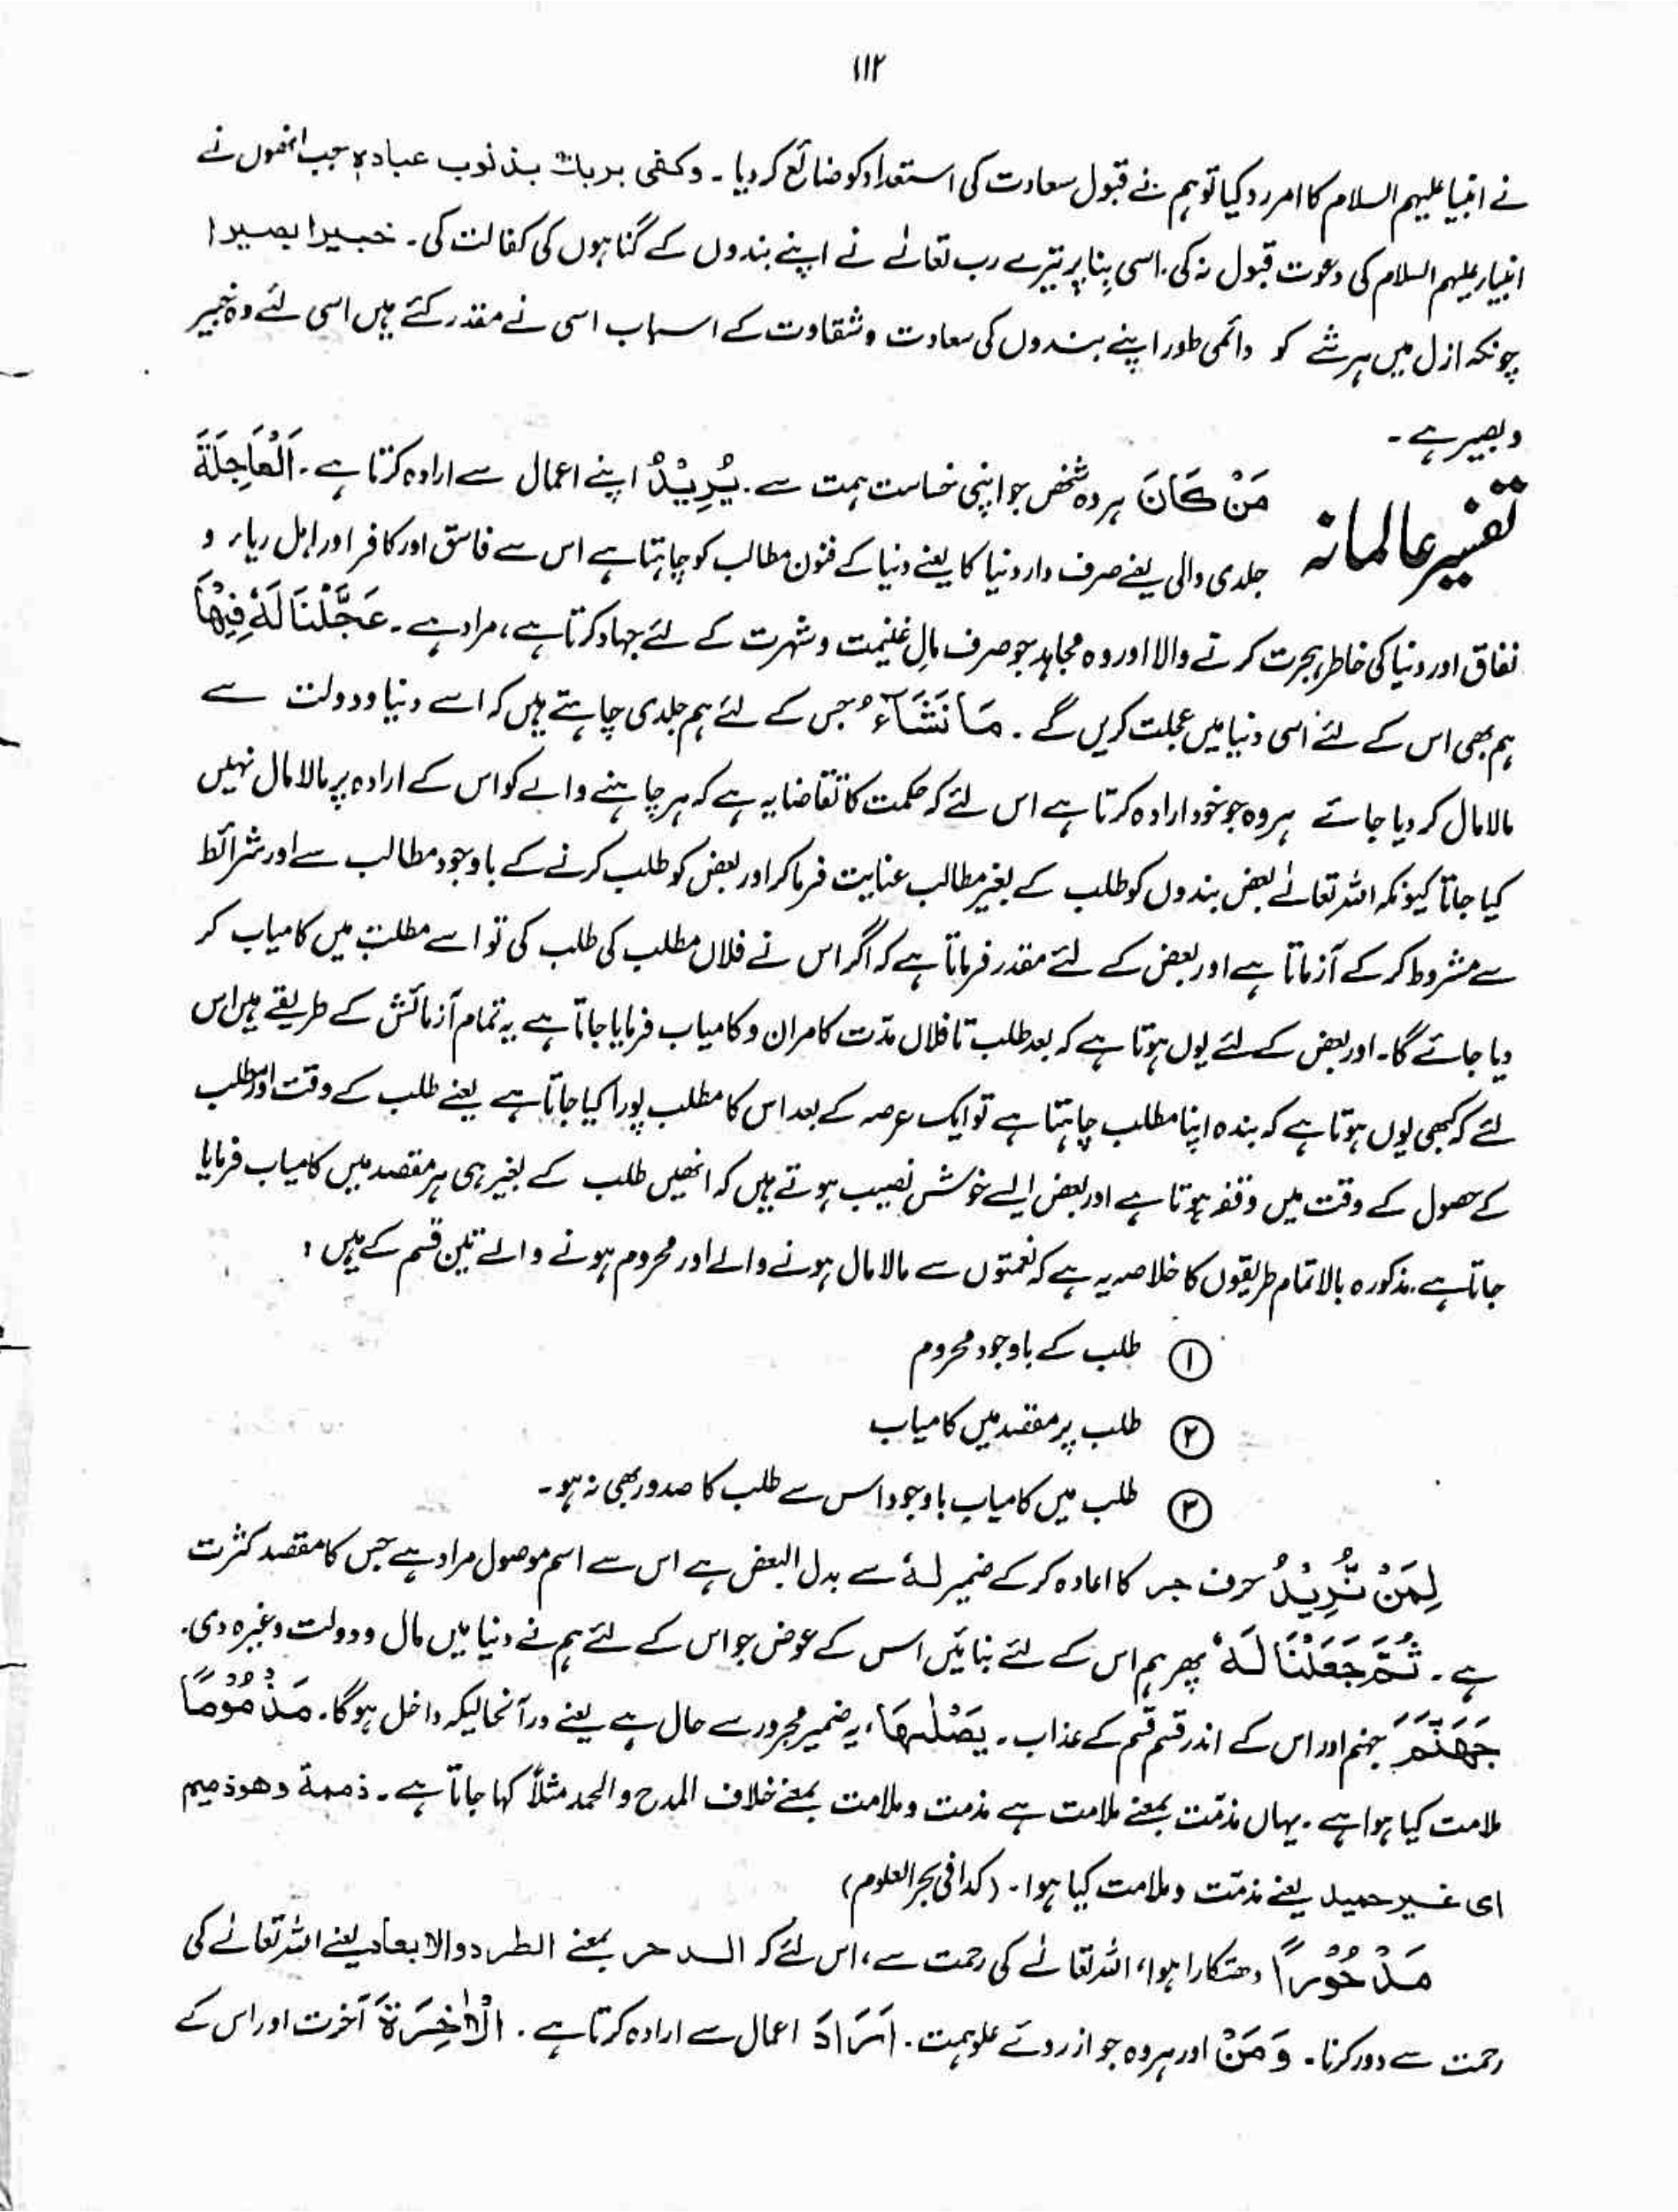 ۱۱۲
نے انبیا علیہم السلام کا امر رد کیا تو ہم نے قبول سعادت کی استعداد کو ضائع کر دیا ۔ وکفی بربک بذنوب عبادہ جب انھوں نے
انبیار علیہم السلام کی دعوت قبول نہ کی. اسی بِنا پر تیرے رب تعالےٰ نے اپنے بندوں کے گناہوں کی کفالت کی ۔ خبیرا بصیرا
چونکہ ازل میں ہر شے کو دائمی طور اپنے بندوں کی سعادت و شقاوت کے اسباب اسی نے مقدر کئے ہیں اسی لئے وہ خبیر
و بصیر ہے ۔
تفسیر عالمانہ
مَنْ كَانَ ہر وہ شخص جو اپنی خساست ہمت سے ۔ يُرِيْدُ اپنے اعمال سے ارادہ کرتا ہے ۔ الْعَاجِلَةَ
جلدی والی یعنے صرف دار دنیا کا یعنے دنیا کے فنون مطالب کو چاہتا ہے اس سے فاسق اور کافر اور اہل ریاء و
نفاق اور دنیا کی خاطر ہجرت کرنے والا اور وہ مجاہد جو صرف مالِ غنیمت و شہرت کے لئے جہاد کرتا ہے، مراد ہے ۔ عَجَّلْنَا لَهٗ فِيْهَا
ہم بھی اس کے لئے اسی دنیا میں عجلت کریں گے ۔ مَا نَشَآءُ جس کے لئے ہم جلدی چاہتے ہیں کہ اسے دنیا و دولت سے
مالا مال کر دیا جائے ہر وہ جو خود ارادہ کرتا ہے اس لئے کہ حکمت کا تقاضا یہ ہے کہ ہر چاہنے والے کو اس کے ارادہ پر مالا مال نہیں
کیا جاتا کیونکہ اللہ تعالےٰ بعض بندوں کو طلب کے بغیر مطالب عنایت فرما کر اور بعض کو طلب کرنے کے باوجود مطالب سے اور شرائط
سے مشروط کر کے آزماتا ہے اور بعض کے لئے مقدر فرماتا ہے کہ اگر اس نے فلاں مطلب کی طلب کی تو اسے مطلب میں کامیاب کر
دیا جائے گا ۔ اور بعض کے لئے یوں ہوتا ہے کہ بعد طلب تا فلاں مدّت کامران و کامیاب فرمایا جاتا ہے یہ تمام آزمائش کے طریقے ہیں اس
لئے کہ کبھی یوں ہوتا ہے کہ بندہ اپنا مطلب چاہتا ہے تو ایک عرصہ کے بعد اس کا مطلب پورا کیا جاتا ہے یعنے طلب کے وقت اور مطلب
کے حصول کے وقت میں وقفہ ہوتا ہے اور بعض ایسے خوش نصیب ہوتے ہیں کہ انھیں طلب کے بغیر ہی ہر مقصد میں کامیاب فرمایا
جاتا ہے. مذکورہ بالا تمام طریقوں کا خلاصہ یہ ہے کہ نعمتوں سے مالا مال ہونے والے اور محروم ہونے والے تین قسم کے ہیں :
① طلب کے باوجود محروم
② طلب پر مقصد میں کامیاب
③ طلب میں کامیاب باوجود اس سے طلب کا صدور بھی نہ ہو ۔
لِمَنْ نُّرِيْدُ حرف جر کا اعادہ کر کے ضمیر لہٗ سے بدل البعض ہے اس سے اسم موصول مراد ہے جس کا مقصد کثرت
ہے ۔ ثُمَّ جَعَلْنَا لَهٗ پھر ہم اس کے لئے بنائیں اس کے عوض جو اس کے لئے ہم نے دنیا میں مال و دولت وغیرہ دی.
جَهَنَّمَ جہنم اور اس کے اندر قسم قسم کے عذاب ۔ يَصْلٰىهَا ، یہ ضمیر مجرور سے حال ہے یعنے درآنحالیکہ داخل ہوگا ۔ مَذْمُوْمًا
ملامت کیا ہوا ہے ۔ یہاں مذمّت بمعنے ملامت ہے مذمت و ملامت بمعنے خلاف المدح والحمد مثلاً کہا جاتا ہے ۔ ذممۃ وھو ذمیم
ای غیر حمید یعنے مذمّت و ملامت کیا ہوا ۔ (کذا فی بحر العلوم)
مَدْحُوْرًا دھتکارا ہوا، اللہ تعالےٰ کی رحمت سے ، اس لئے کہ الدحر بمعنے الطرد والابعاد یعنے اللہ تعالےٰ کی
رحمت سے دور کرنا ۔ وَمَنْ اور ہر وہ جو از روئے علو ہمت ۔ اَرَادَ اعمال سے ارادہ کرتا ہے ۔ الْاٰخِرَةَ آخرت اور اس کے